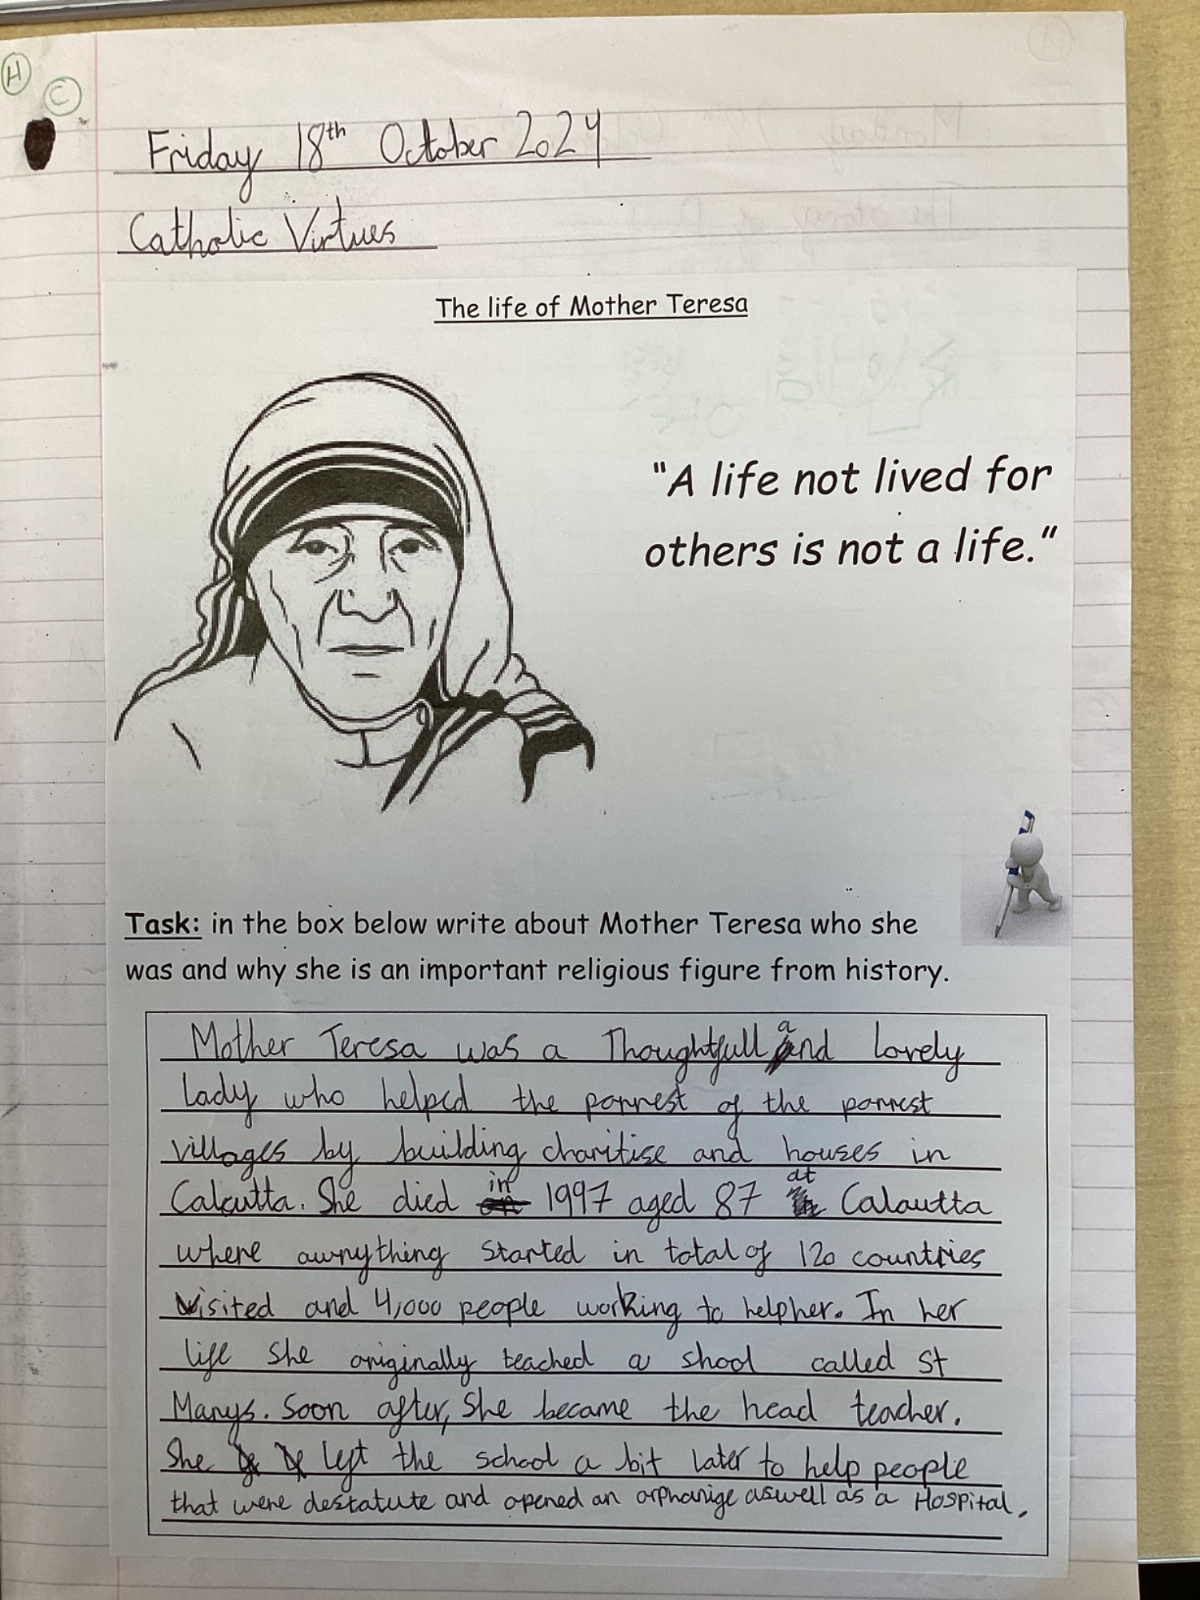 H
C
Friday 18th October 2024
Catholic Virtues
The life of Mother Teresa
"A life not lived for
others is not a life."
Task: in the box below write about Mother Teresa who she
was and why she is an important religious figure from history.
Mother Teresa was a Thoughtfull and lovely
lady who helped the porrest of the porrest
villages by building charitise and houses in
Calcutta. She died in 1997 aged 87 at Calautta
where awrything started in total of 120 countries
visited and 4,000 people working to help her. In her
life she originally teached a shool called St
Marys. Soon after, She became the head teacher.
She left the school a bit later to help people
that were destatute and opened an orphanige aswell as a Hospital.